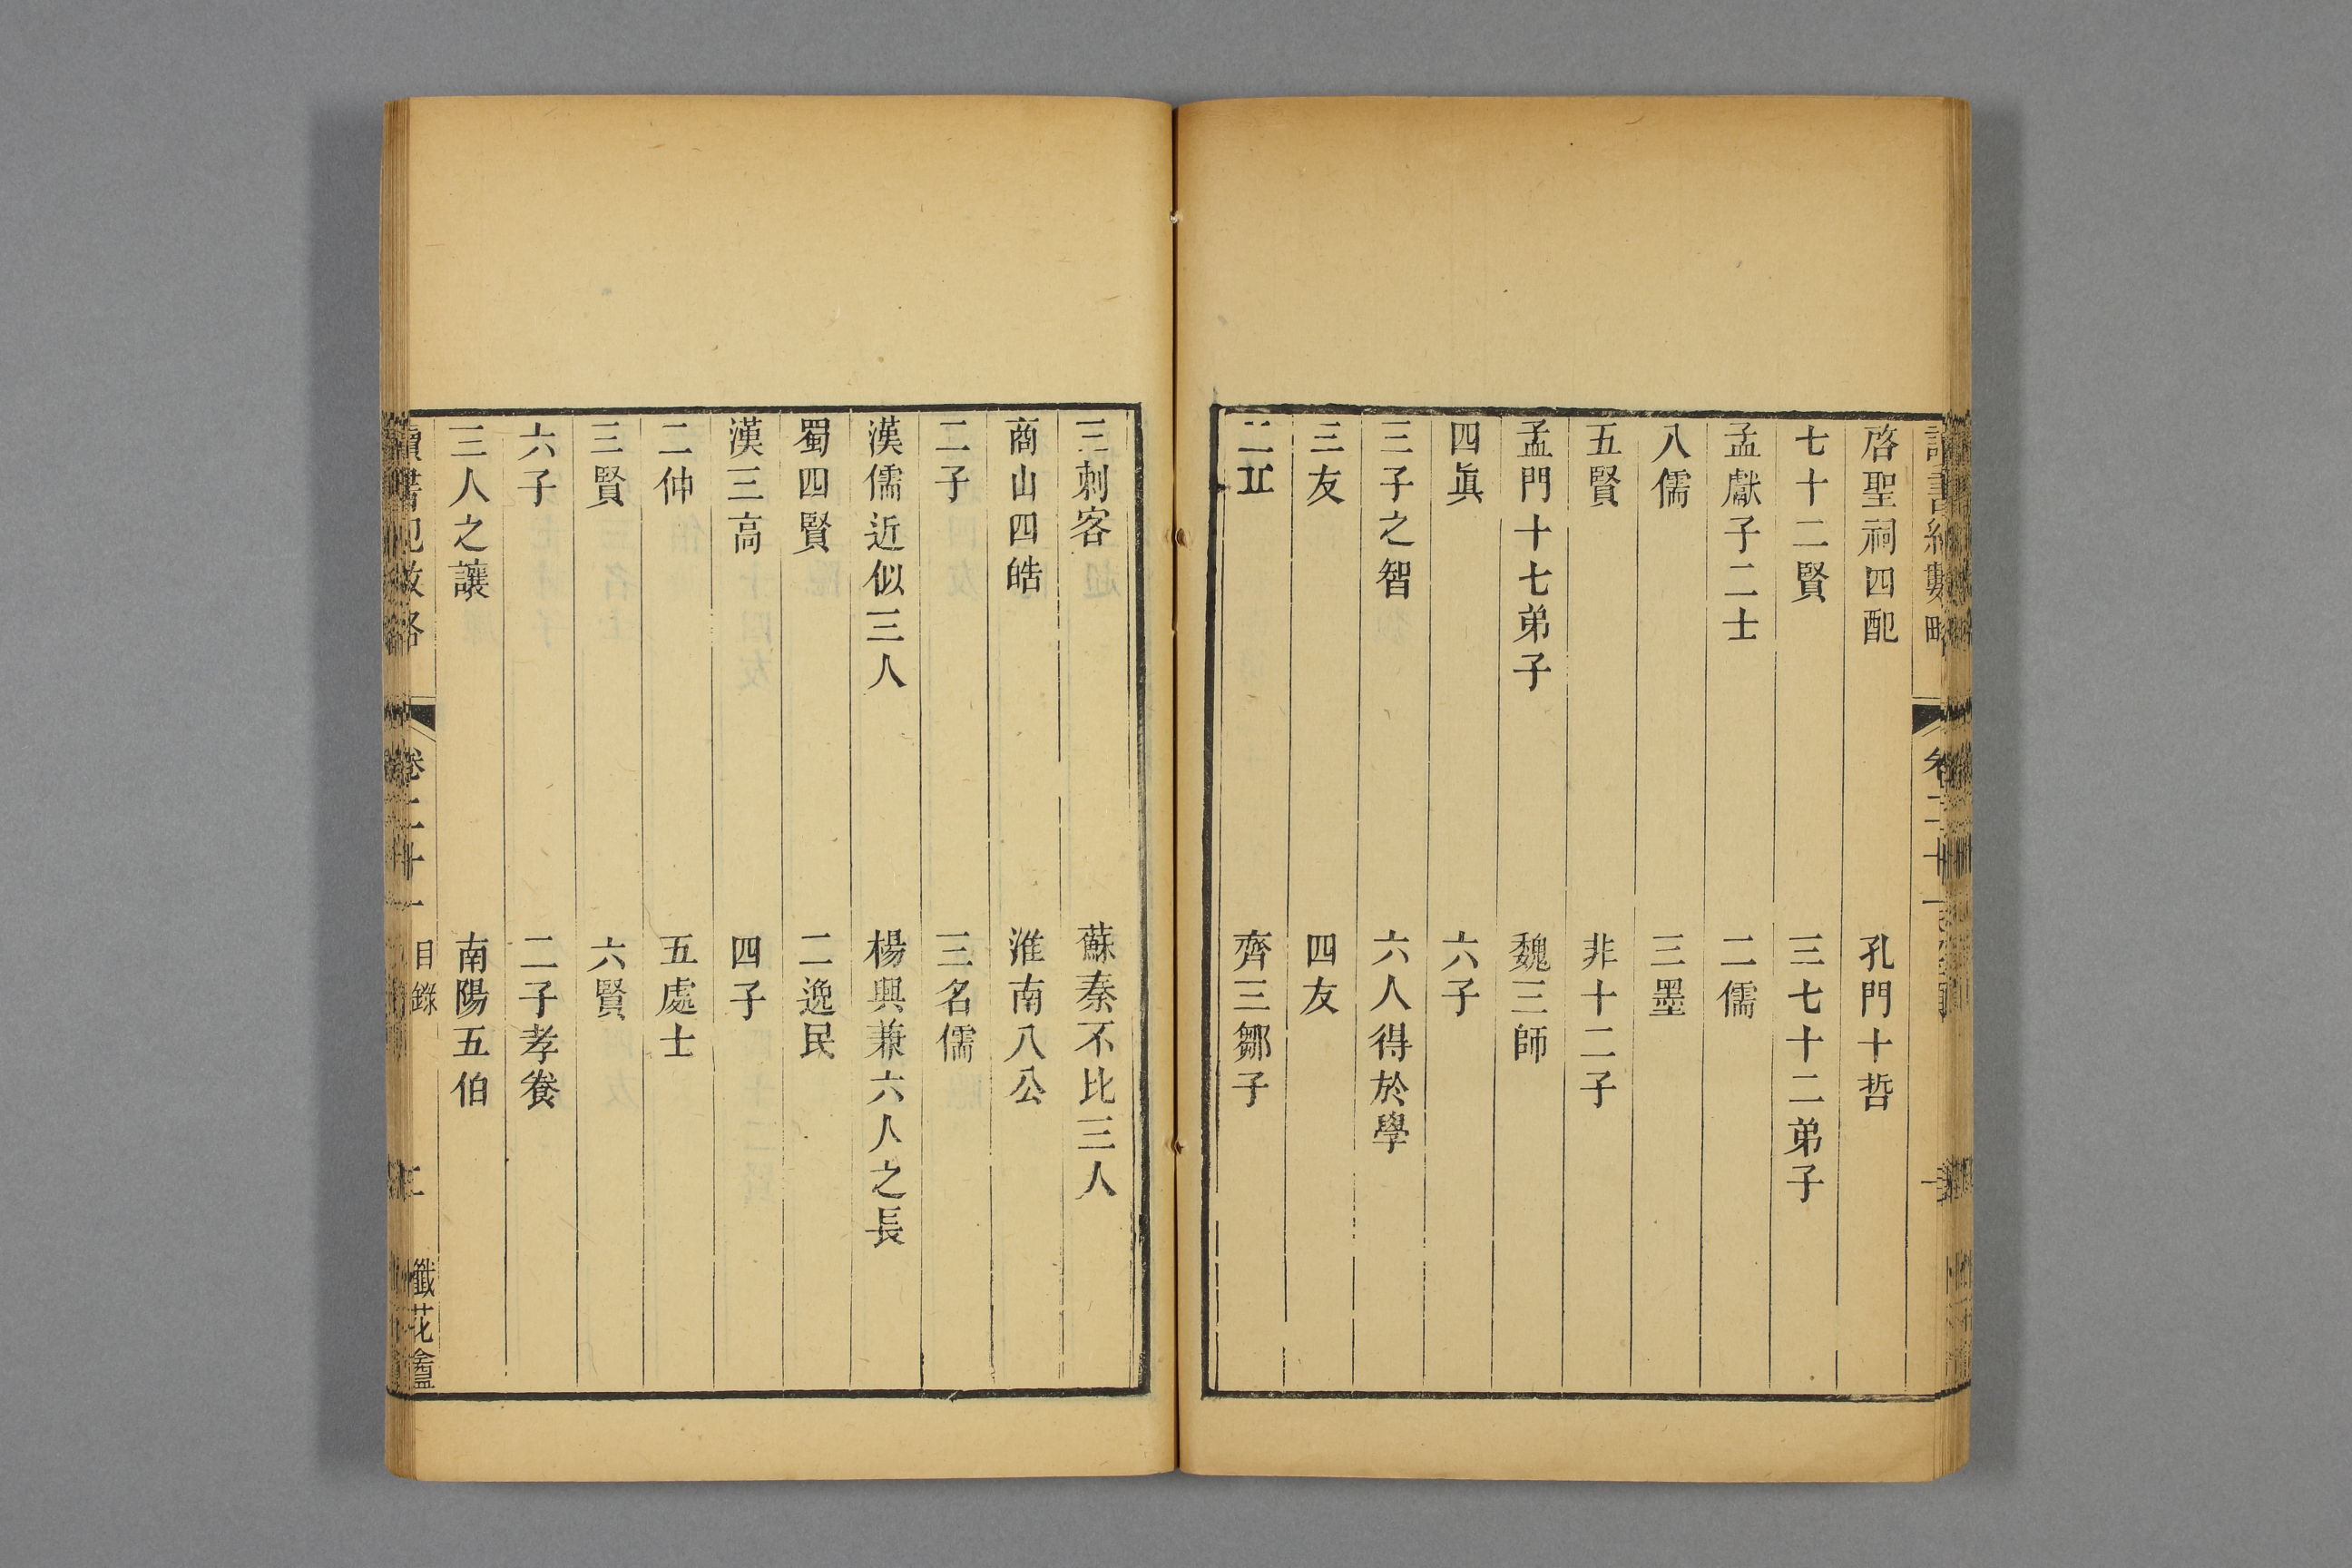 啓聖祠四配　孔門十哲
七十二賢　三七十二弟子
孟獻子二士　二儒
八儒　三墨
五賢　非十二子
孟門十七弟子　魏三師
四眞　六子
三子之智　六人得於學
三友　四友
齊三鄒子
三刺客　蘇秦不比三人
商山四皓　淮南八公
二子　三名儒
漢儒近似三人　楊興兼六人之長
蜀四賢　二逸民
漢三高　四子
二仲　五處士
三賢　六賢
六子　二子孝養
三人之讓　南陽五伯
讀書紀數略　卷二十一　目錄　二